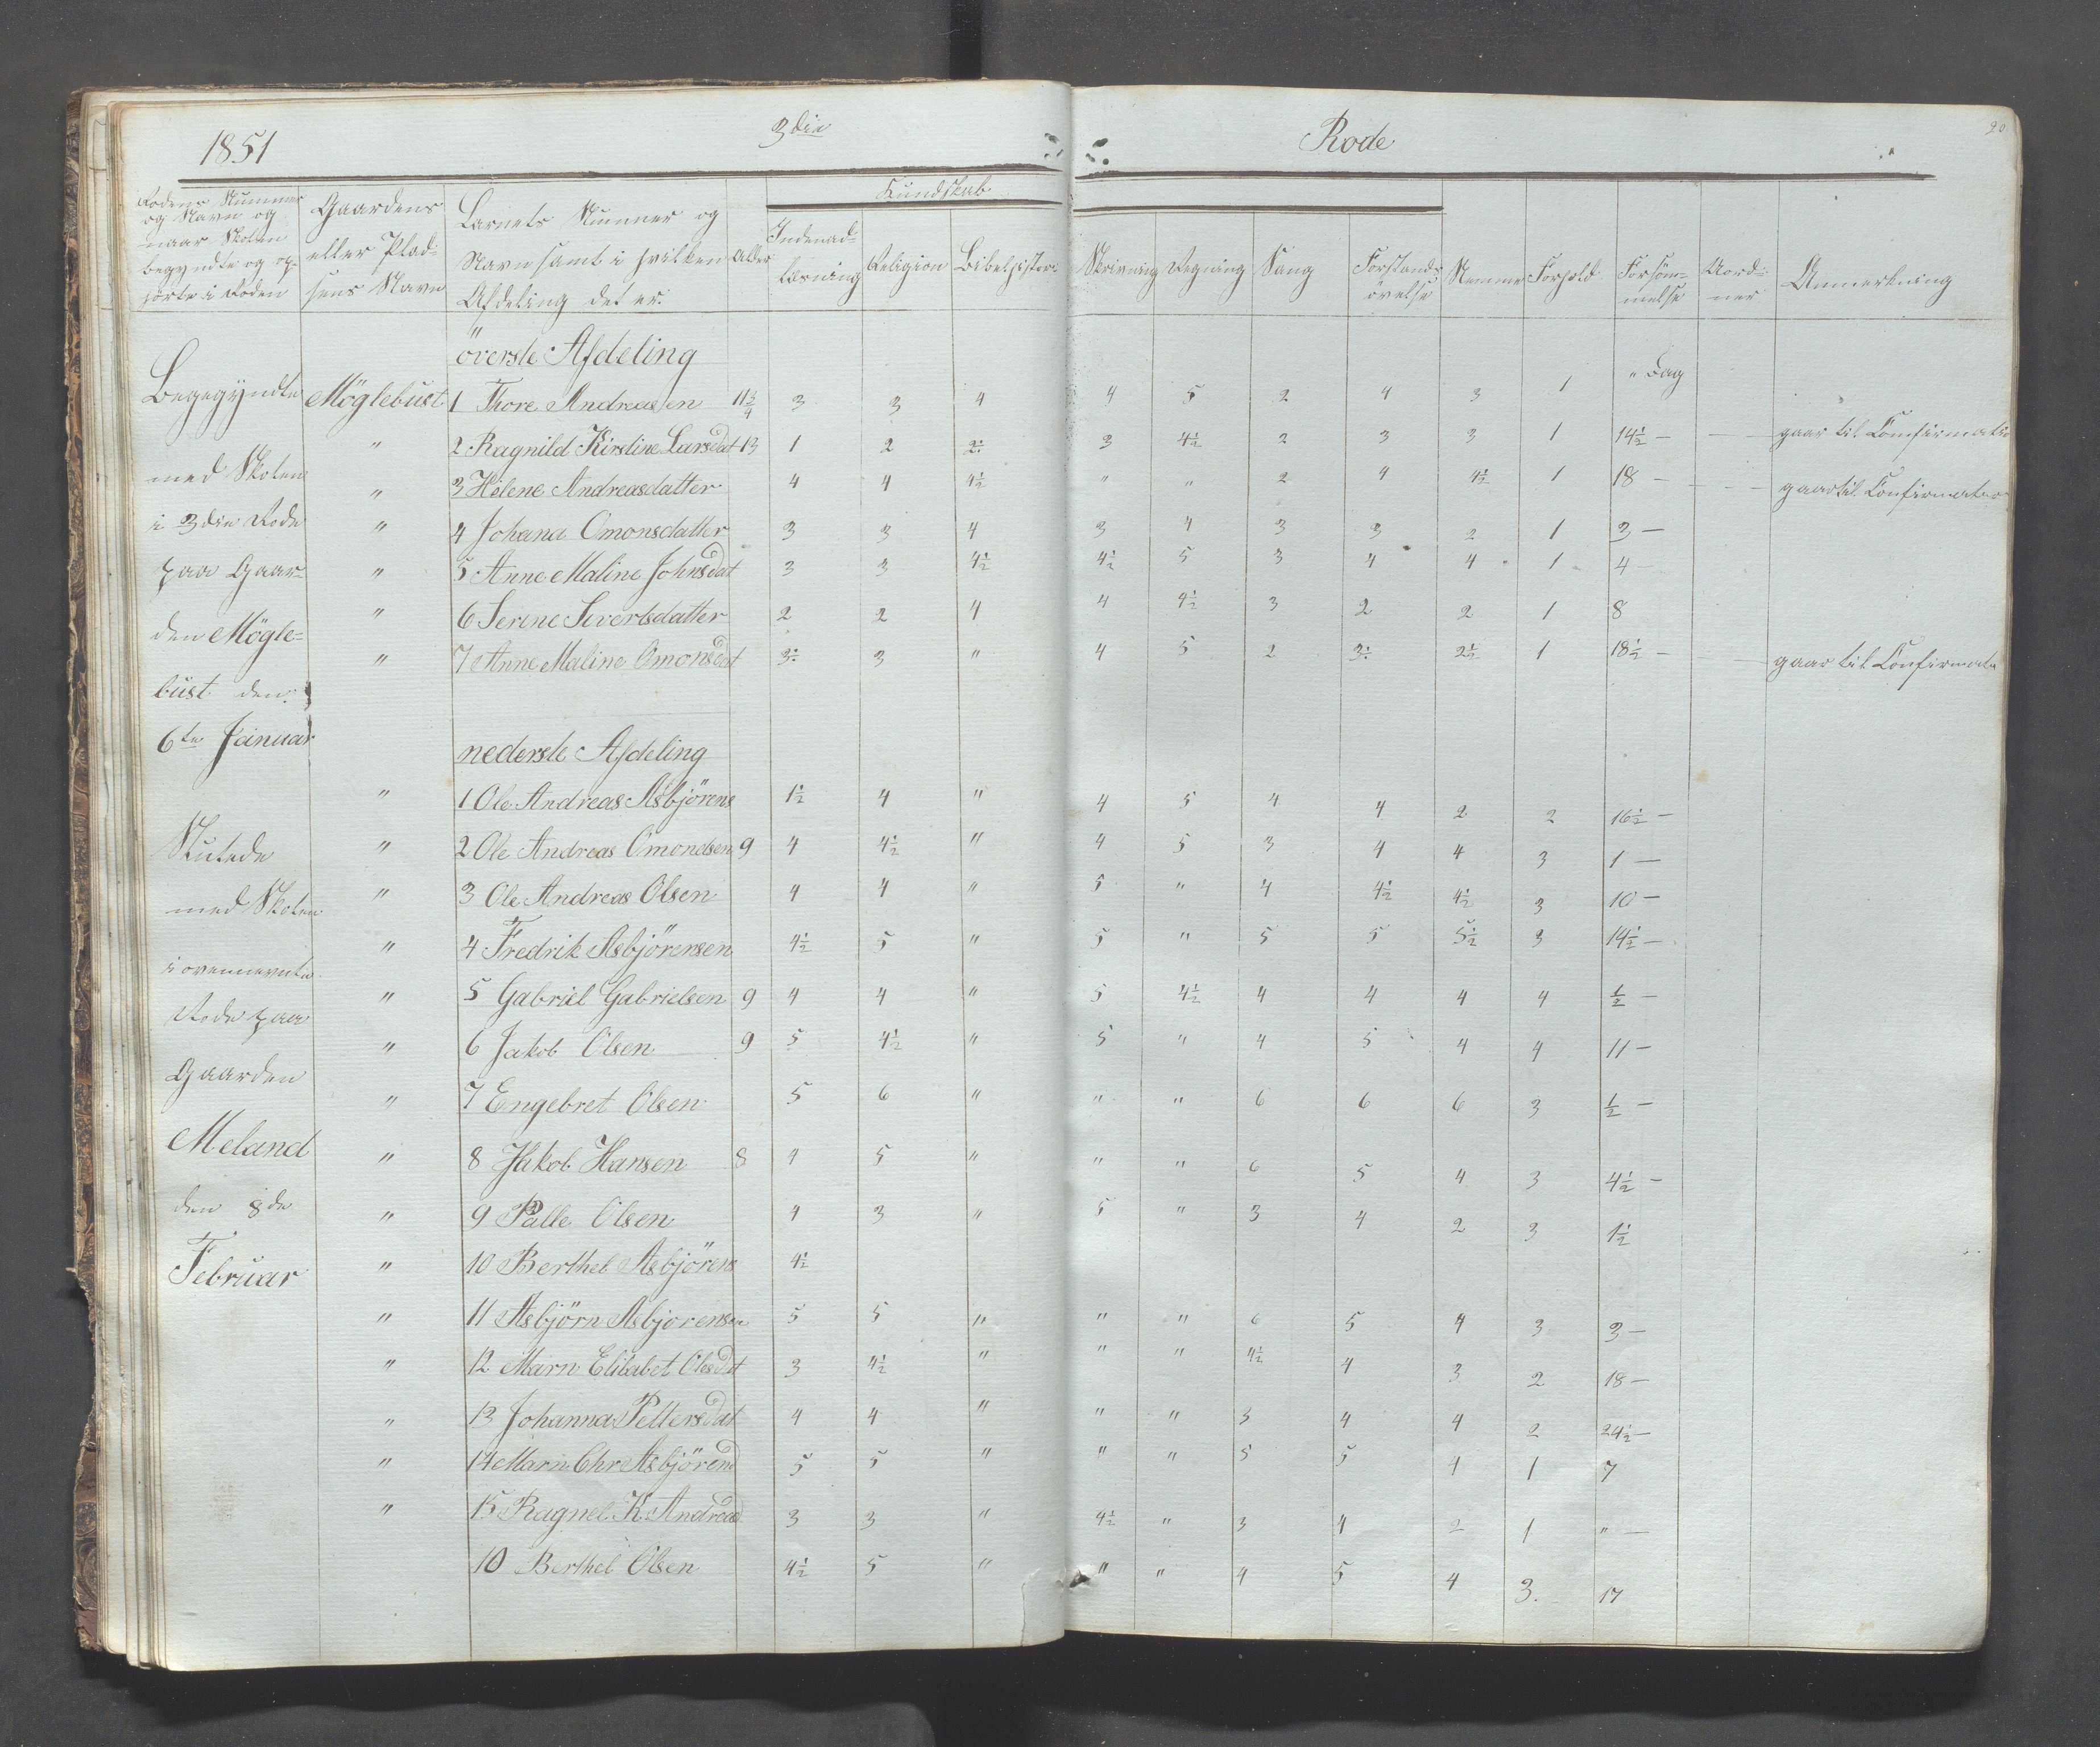 1851 3die Rode 20
Rodens Nummer og Navn og naar Skolen begyndte og op-hørte i Roden
Gaardens eller Plad-sens Navn
Barnets Nummer og Navn samt i hvilken Afdeling det er.
Alder
Kundskab
Indenad-læsning
Religion
Bibelhistori
Skrivning
Regning
Sang
Forstands-övelse
Nemme
Forhold
Forsöm-melse
Uord-ner
Anmerkning
Begegÿndte
med Skolen
i 3die Rode
paa Gaar-
den Mögle-
bust den
6te Januar
Slutede
med Skolen
i ovennevnte
Rode paa
Gaarden
Meland
den 8de
Februar
överste Afdeling
" Dag
Möglebust 1 Thore Andreassen 11 3/4 3 3 4 4 5 2 4 3 1
" 2 Ragnild Kirstine Larsdat 13 1 2 2 3 4½ 2 3 3 1 14½ — — gaar til Comfirmatio
" 3 Helene Andreasdatter 4 4 4½ " " 2 4 4½ 1 18 — — gaar til Confirmatio
" 4 Johana Omonsdatter 3 3 4 3 4 3 3 2 1 3 —
" 5 Anne Maline Johnsdat 3 3 4½ 4½ 5 3 4 4 1 4 —
" 6 Serine Sivertsdatter 2 2 4 4 4½ 3 2 2 1 8
" 7 Anne Maline Omonsdat 3 3 " 4 5 2 3 2½ 1 18½ — — gaar til Confirmati
nederste Afdeling
" 1 Ole Andreas Asbjörens 1½ 4 " 4 5 4 4 2 2 16½ —
" 2 Ole Andreas Omondsen 9 4 4½ " 4 5 3 4 4 3 1 —
" 3 Ole Andreas Olsen 4 4 " 5 " 4 4½ 4½ 3 10 —
" 4 Fredrik Asbjörensen 4½ 5 " 5 " 5 5 5½ 3 14½ —
" 5 Gabriel Gabrielsen 9 4 4 " 5 4½ 4 4 4 4 ½ —
" 6 Jakob Olsen 9 5 4½ " 5 " 4 5 4 4 11 —
" 7 Engebret Olsen 5 6 " " " 6 6 6 3 ½ —
" 8 Jakob Hansen 8 4 5 " " " 6 5 4 3 4½ —
" 9 Palle Olsen 4 3 " 5 " 3 4 2 3 1½
" 10 Berthel Asbjörens 4½
" 11 Asbjörn Asbjorensen 5 5 " " " 6 5 4 3 3 —
" 12 Marn Elisabet Olesdat 3 4½ " " " 4½ 4 3 2 18 —
" 13 Johanna Pettersdat 4 4 " " " 3 4 4 2 24½ —
" 14 Marn Chr Asbjörend 5 5 " " " 5 5 4 1 7
" 15 Ragnel K Andread 3 3 " 4½ " 3 4 2 1 " —
10 Berthel Olsen 4½ 5 " " " 4 5 4 3. 17